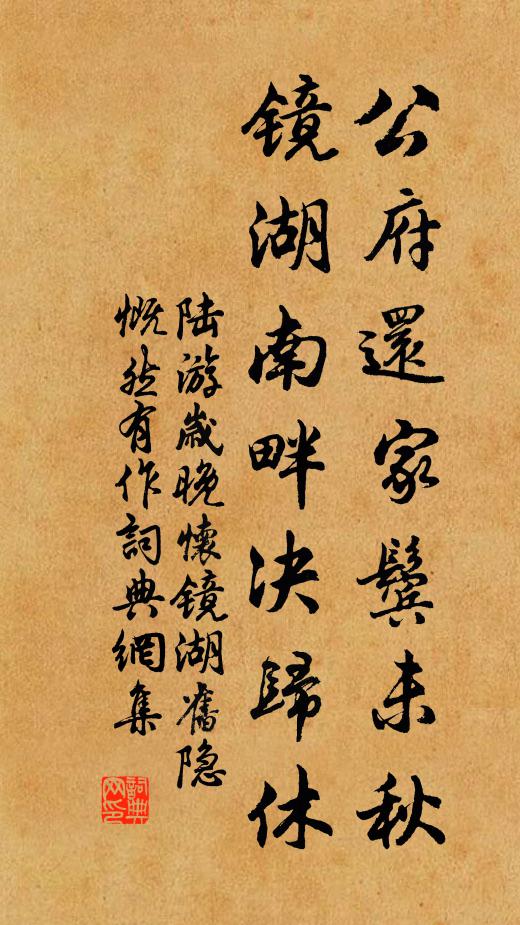 公府還家鬓未秋
镜湖南畔决歸休
陆游歲晚懷镜湖舊隐
慨然有作詞典網集
詞典网印